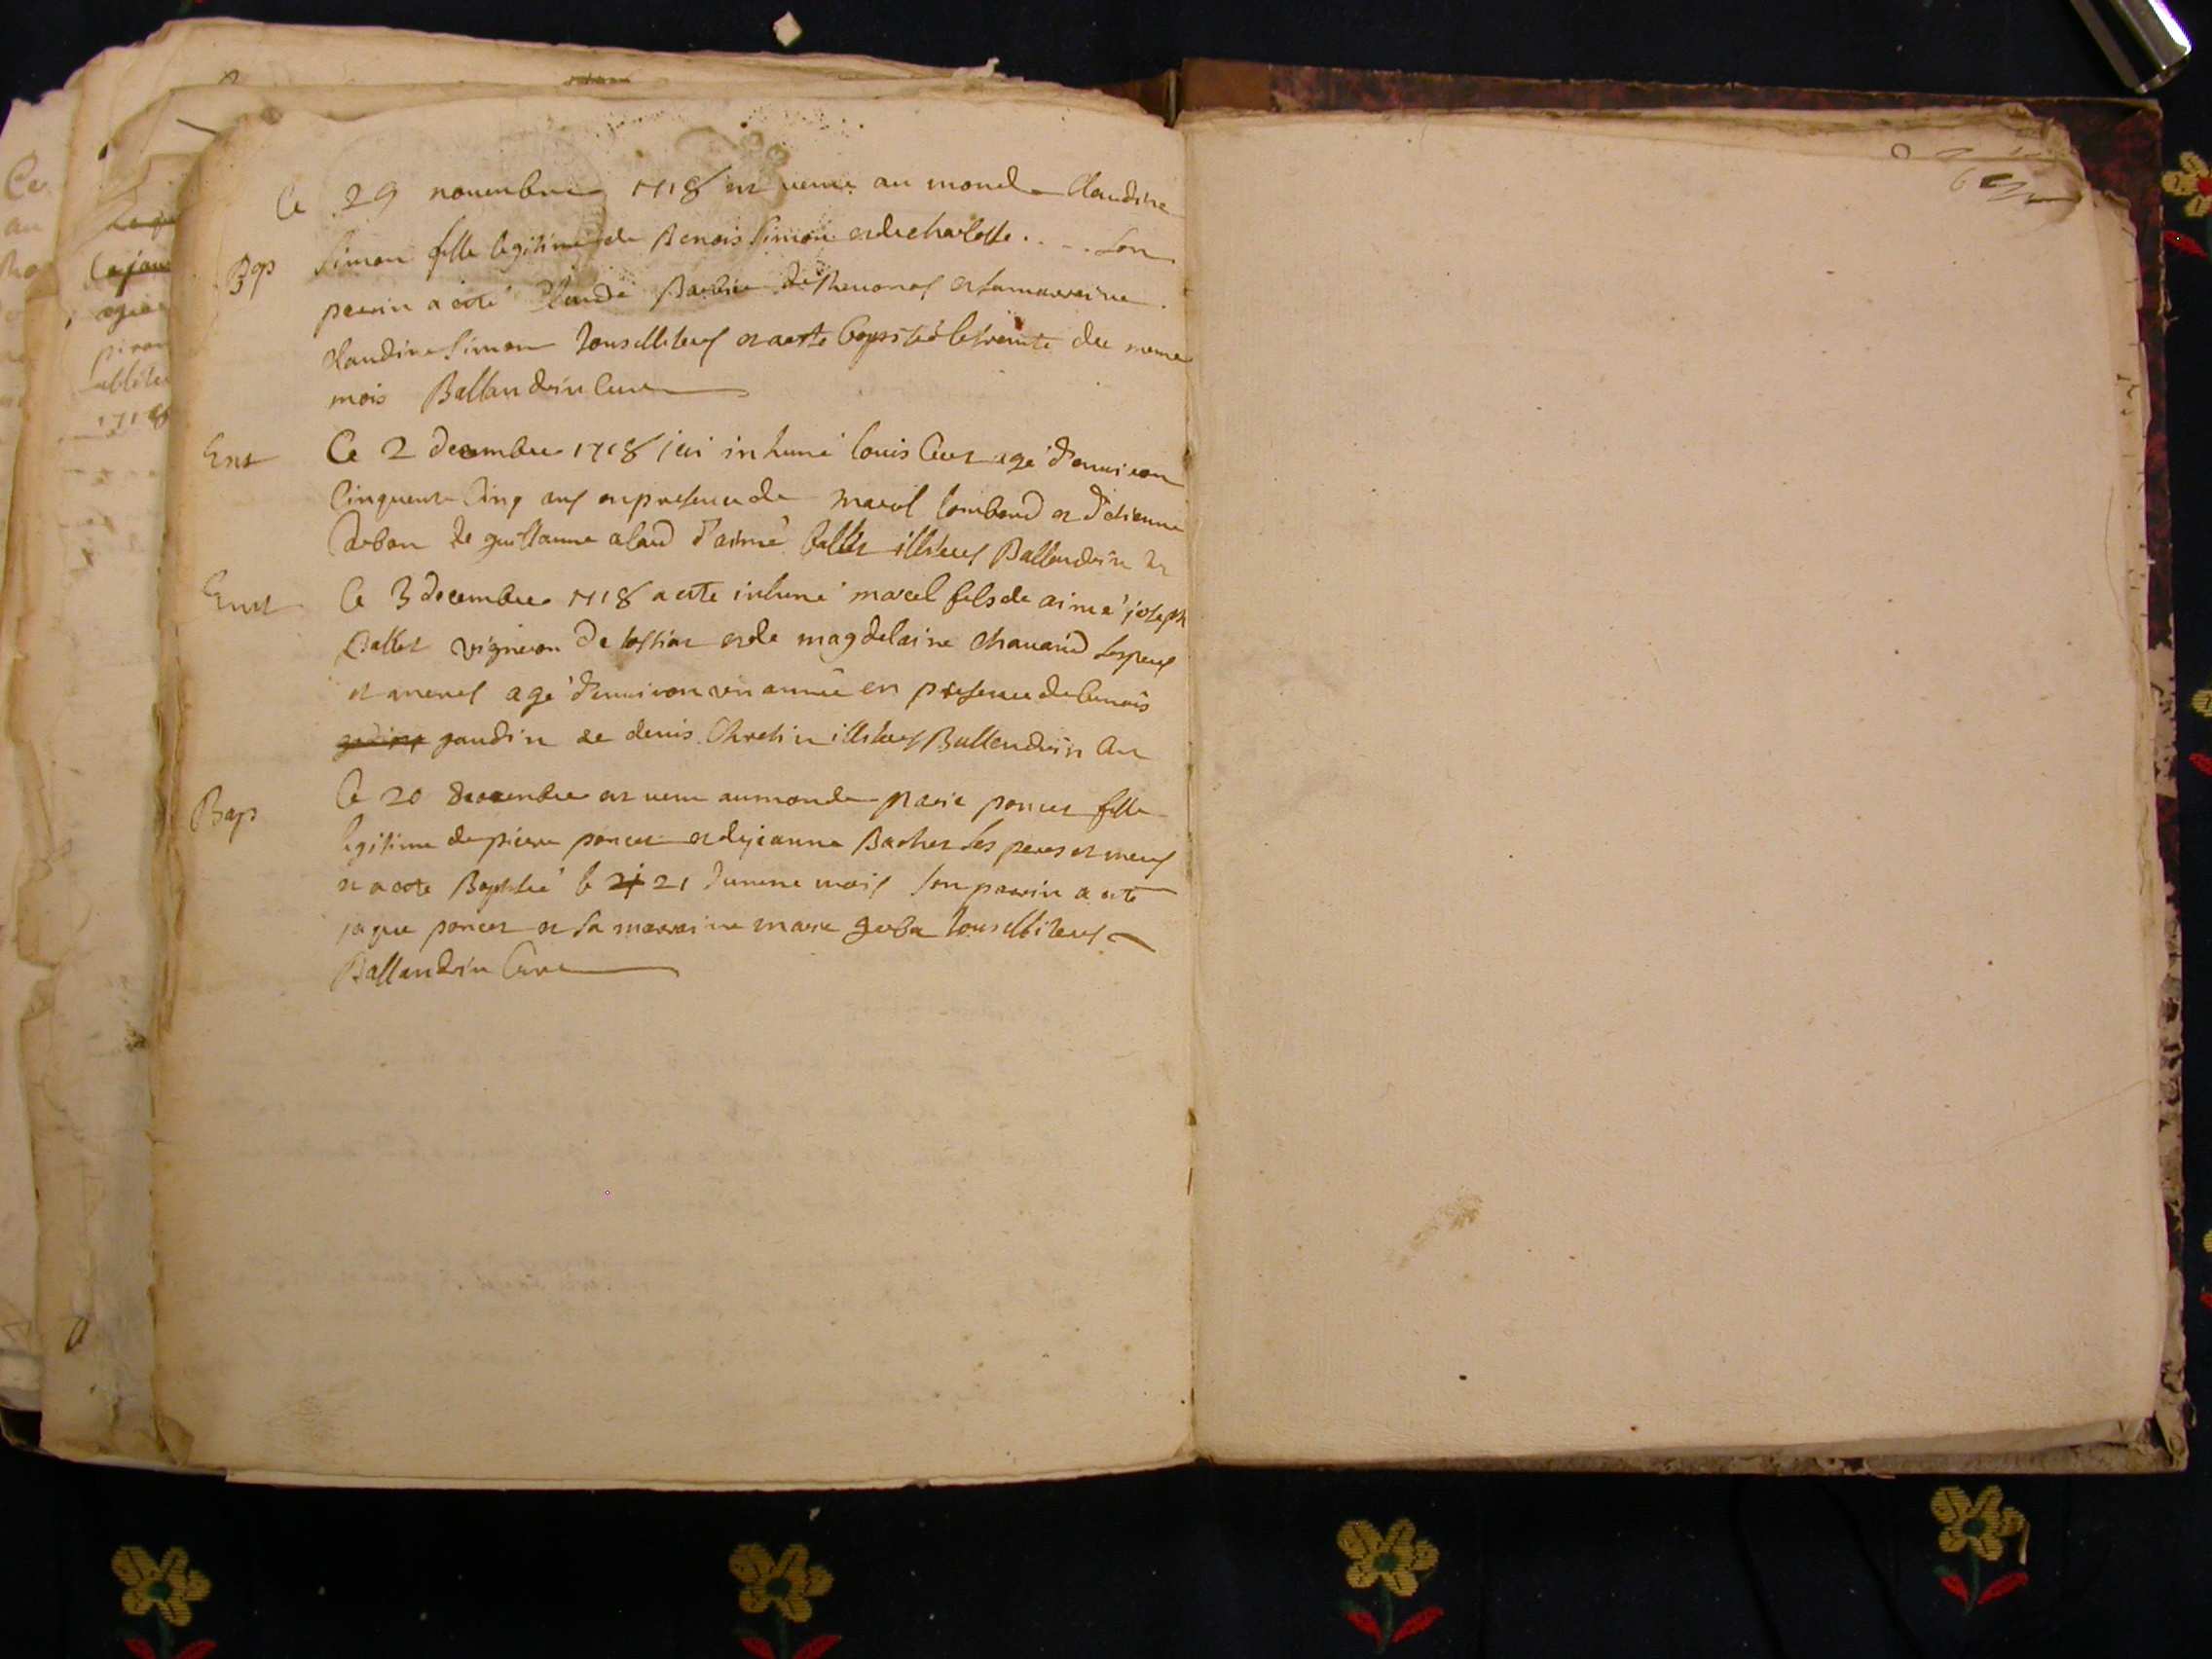 Ce 29 novembre 1718 est venu au monde Claudine
Bap
Simon fille legitime de Benois Simon et de charlotte . . . . Son
parrin a eté Claude Barbier de et sa marraine
claudine Simon tous illiteres et a este baptisé le trente du meme
mois Ballandrin Cure
Ent
Ce 2 decembre 1718 jai inhumé louis age d'environ
Cinquente Cinq ans en presence de marcel lombard et d'etienne
de guillaume alard d'aimé Ballet illiteres Ballandrin
Ent
Ce 3 decembre 1718 a este inhumé marcel fils de aimé joseph
Ballet vigneron de et de magdelaine chavand ses peres
et meres agé d'environ un année en presence de benois
gaudin et denis Chretin illiteres Ballandrin Cur
Bap
Ce 20 decembre est venu au monde marie poncet fille
legitime de pierre poncet et de jeanne Bachet ses peres et meres
et a este Baptisé le 21 21 du meme mois son parrin a eté
jaque poncet et sa marraine marie tous illiteres
Ballandrin Cure